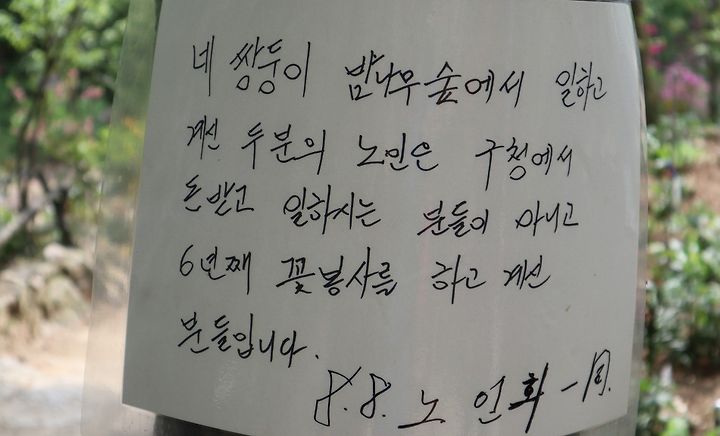 네 쌍둥이 밤나무숲에서 일하고
계신 두분의 노인은 구청에서
돈받고 일하시는 분들이 아니고
6년째 꽃봉사를 하고 계신
분들입니다.
8.8. 노인회 一同.